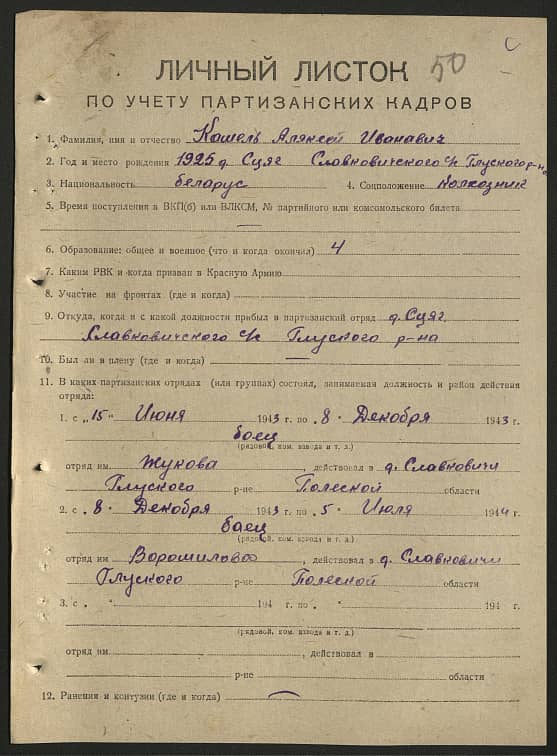 50
ЛИЧНЫЙ ЛИСТОК
ПО УЧЕТУ ПАРТИЗАНСКИХ КАДРОВ
1. Фамилия, имя и отчество Кашель Алексей Иванавич
2. Год и место рождения 1925 д. Сцяг Славковичского с/с Глуского р-на
3. Национальность беларус 4. Соцположение колхозник
5. Время поступления в ВКП(б) или ВЛКСМ, № партийного или комсомольского билета
—
6. Образование: общее и военное (что и когда окончил) 4
7. Каким РВК и когда призван в Красную Армию
8. Участие на фронтах (где и когда)
9. Откуда, когда и с какой должности прибыл в партизанский отряд д. Сцяг
Славковичского с/с Глуского р-на
10. Был ли в плену (где и когда) —
11. В каких партизанских отрядах (или группах) состоял, занимаемая должность и район действия
отряда:
1. с „15" Июня 1943 г. по „8" Декабря 1943 г.
боец
(рядовой, ком. взвода и т. д.)
отряд им. Жукова, действовал в д. Славковичи
Глуского р-не Полеской области
2. с „8" Декабря 1943 г. по „5" Июля 1944 г.
баец
(рядовой, ком. взвода и т. д.)
отряд им Ворошилова, действовал в д. Славковичи
Глуского р-не Полеской области
3. с „ " 194 г. по „ " 194 г.
(рядовой, ком. взвода и т. д.)
отряд им. , действовал в
р-не области
12. Ранения и контузии (где и когда) —